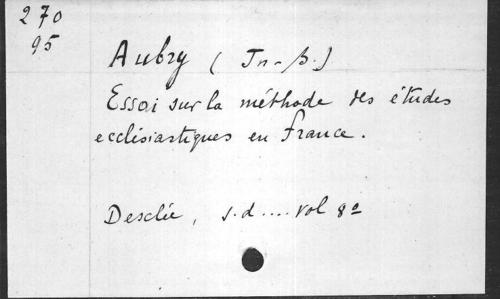 270
95
Aubry (Jn-B.)
Essai sur la méthode des études
ecclésiastiques en France.
Desclée, s.d .... vol 8º